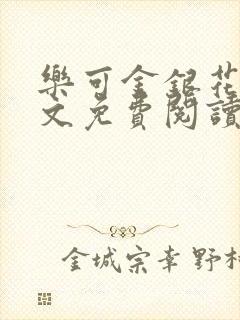 樂可金銀花
文免費閱讀
金城宗幸野村